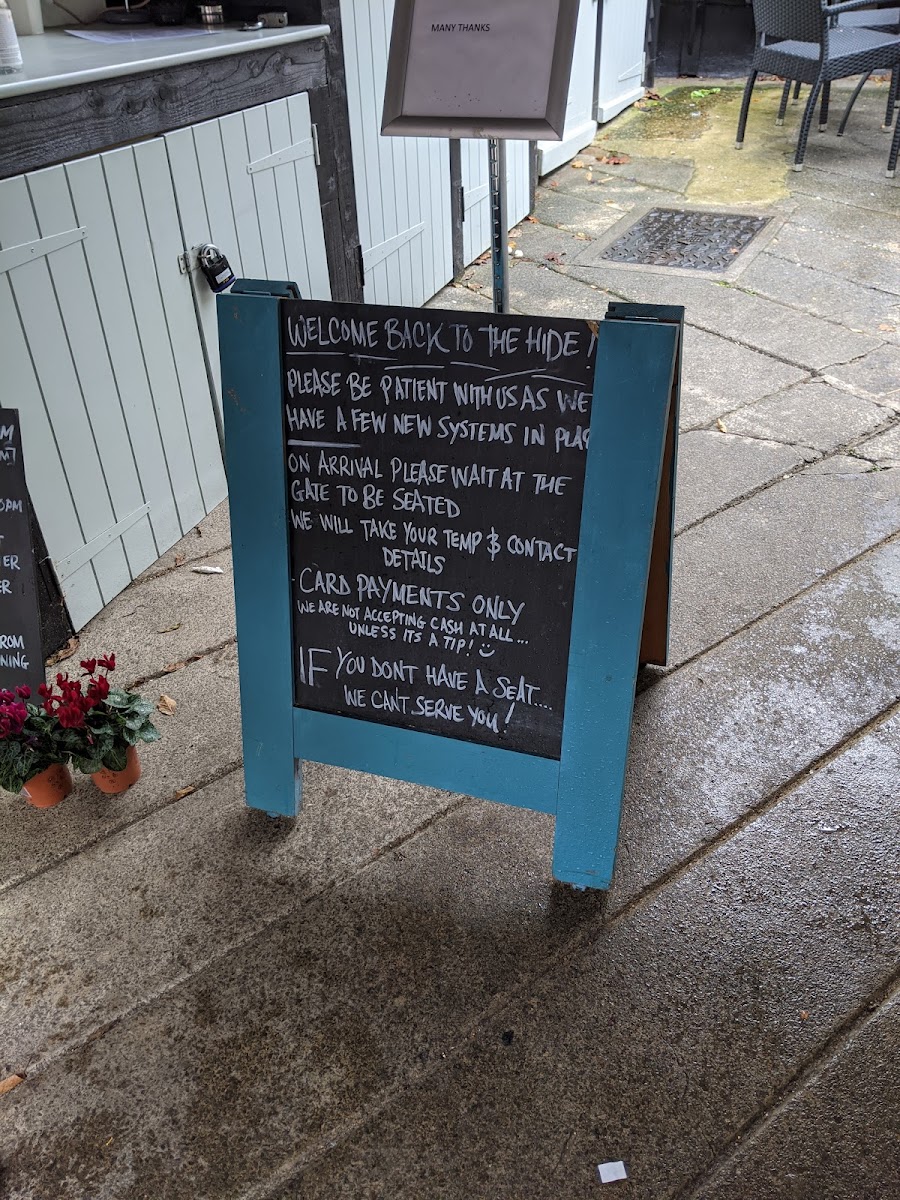 MANY THANKS
WELCOME BACK TO THE HIDE!
PLEASE BE PATIENT WITH US AS WE
HAVE A FEW NEW SYSTEMS IN PLAC
ON ARRIVAL PLEASE WAIT AT THE
GATE TO BE SEATED
WE WILL TAKE YOUR TEMP & CONTACT
DETAILS
CARD PAYMENTS ONLY
WE ARE NOT ACCEPTING CASH AT ALL...
UNLESS ITS A TIP!
IF YOU DONT HAVE A SEAT....
WE CANT SERVE YOU!
M
0PM
ER
ER
ROM
NING